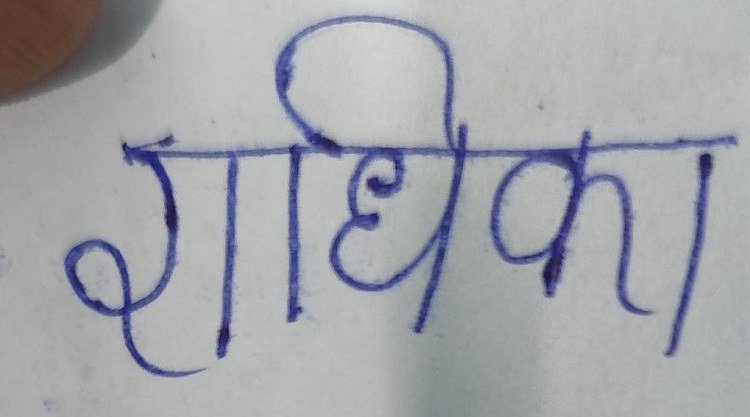 राधिका